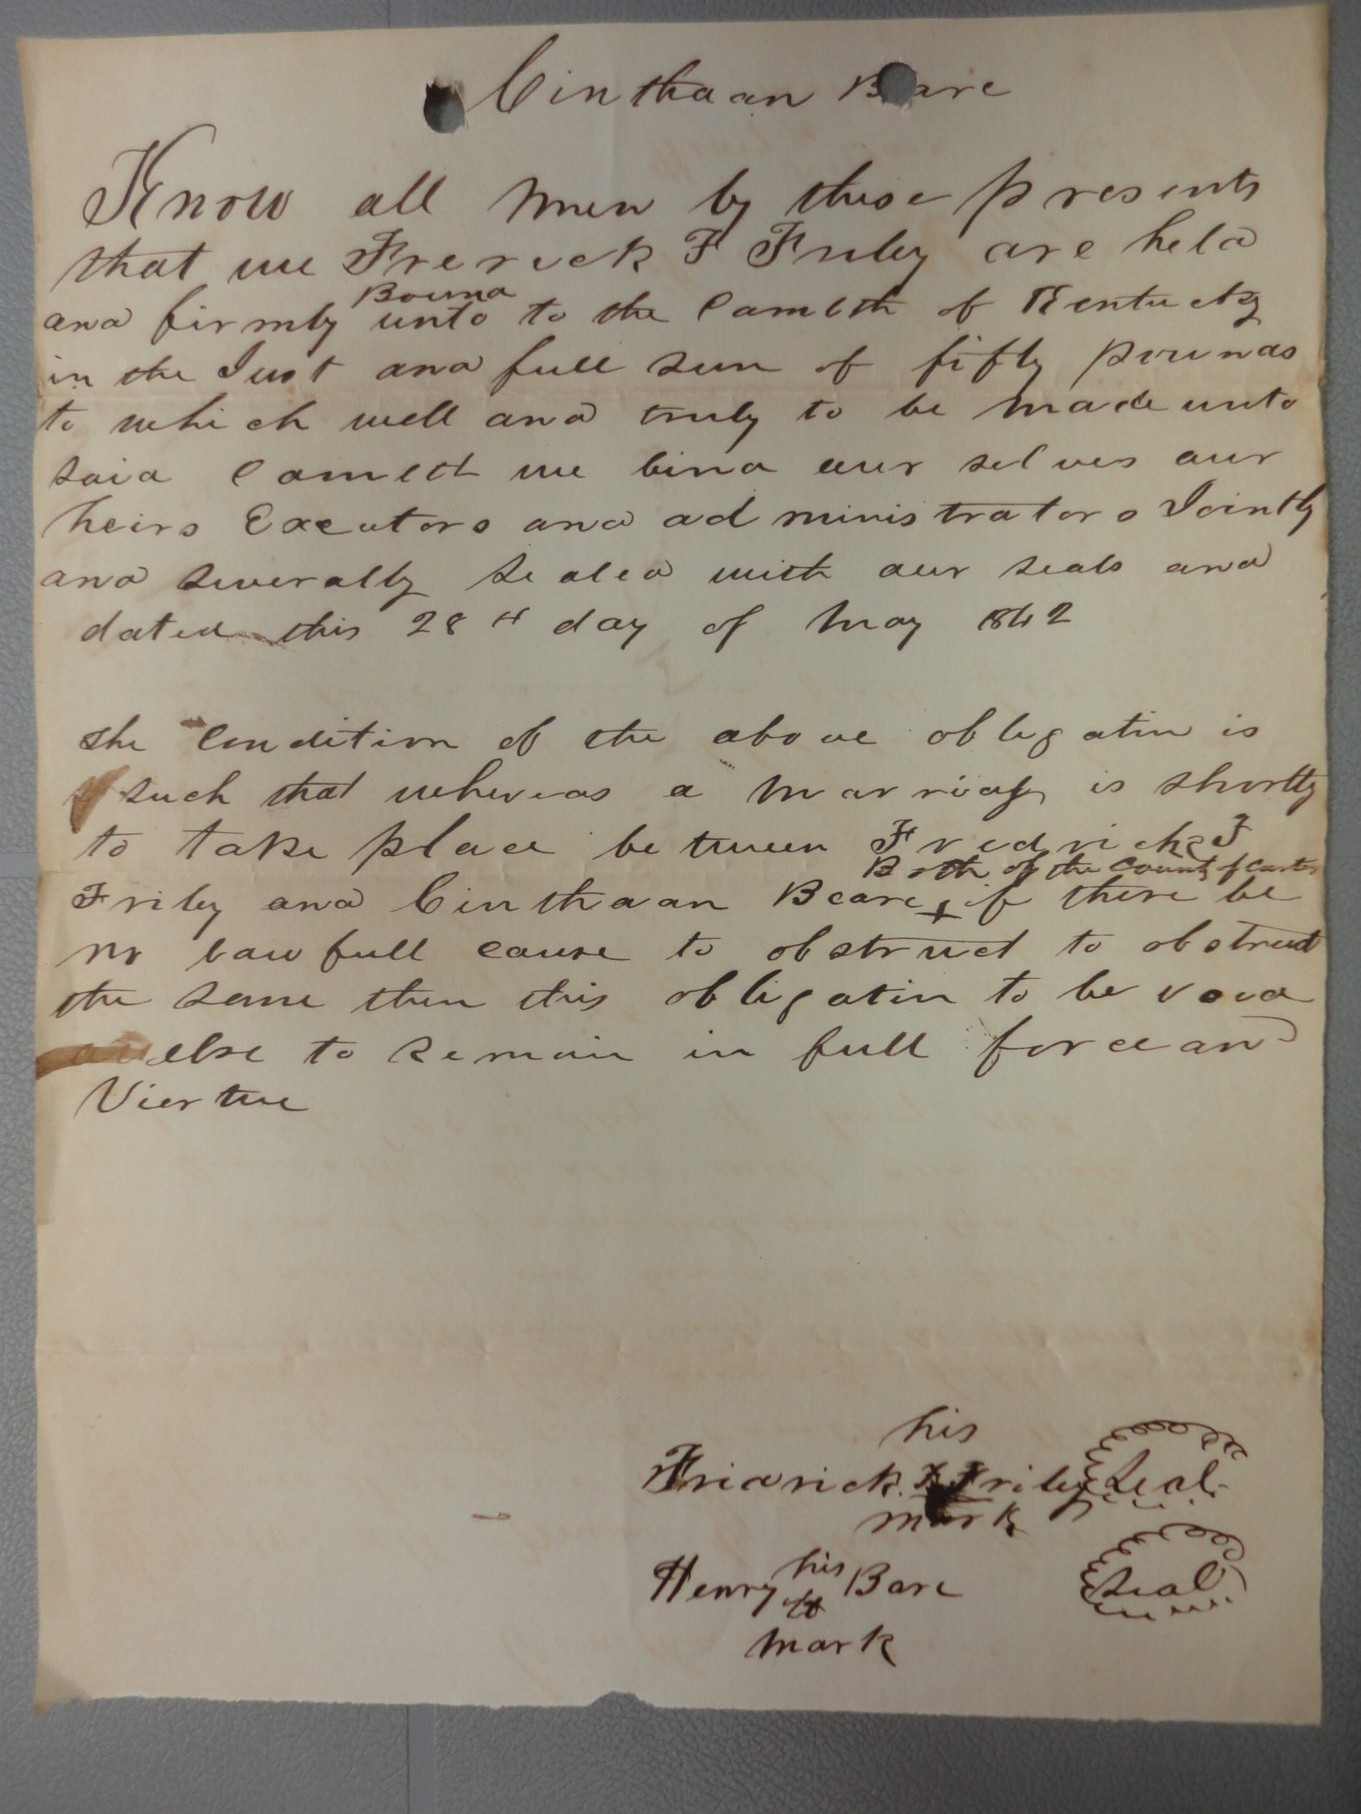 Cinthaan Bare
Know all men by these presents
that we Frerick F Friley are held
Bound
and firmly unto to the Comlth of Kentucky
in the Just and full sum of fifty pounds
to which well and truly to be made unto
said Comlth we bind our selves our
heirs Executors and administrators Jointly
and severally sealed with our seals and
dated this 28th day of May 1842
the Condition of the above obligatin is
such that whereas a marriage is shortly
to take place between Fredrick F
Both of the County of Carter
Friley and Cinthaan Beare + if there be
no lawfull cause to obstruct to obstruct
the same then this obligatin to be void
or else to remain in full force and
Viertue
his
Fridrick F Friley Seal
mark
his
Henry Bare Seal
mark